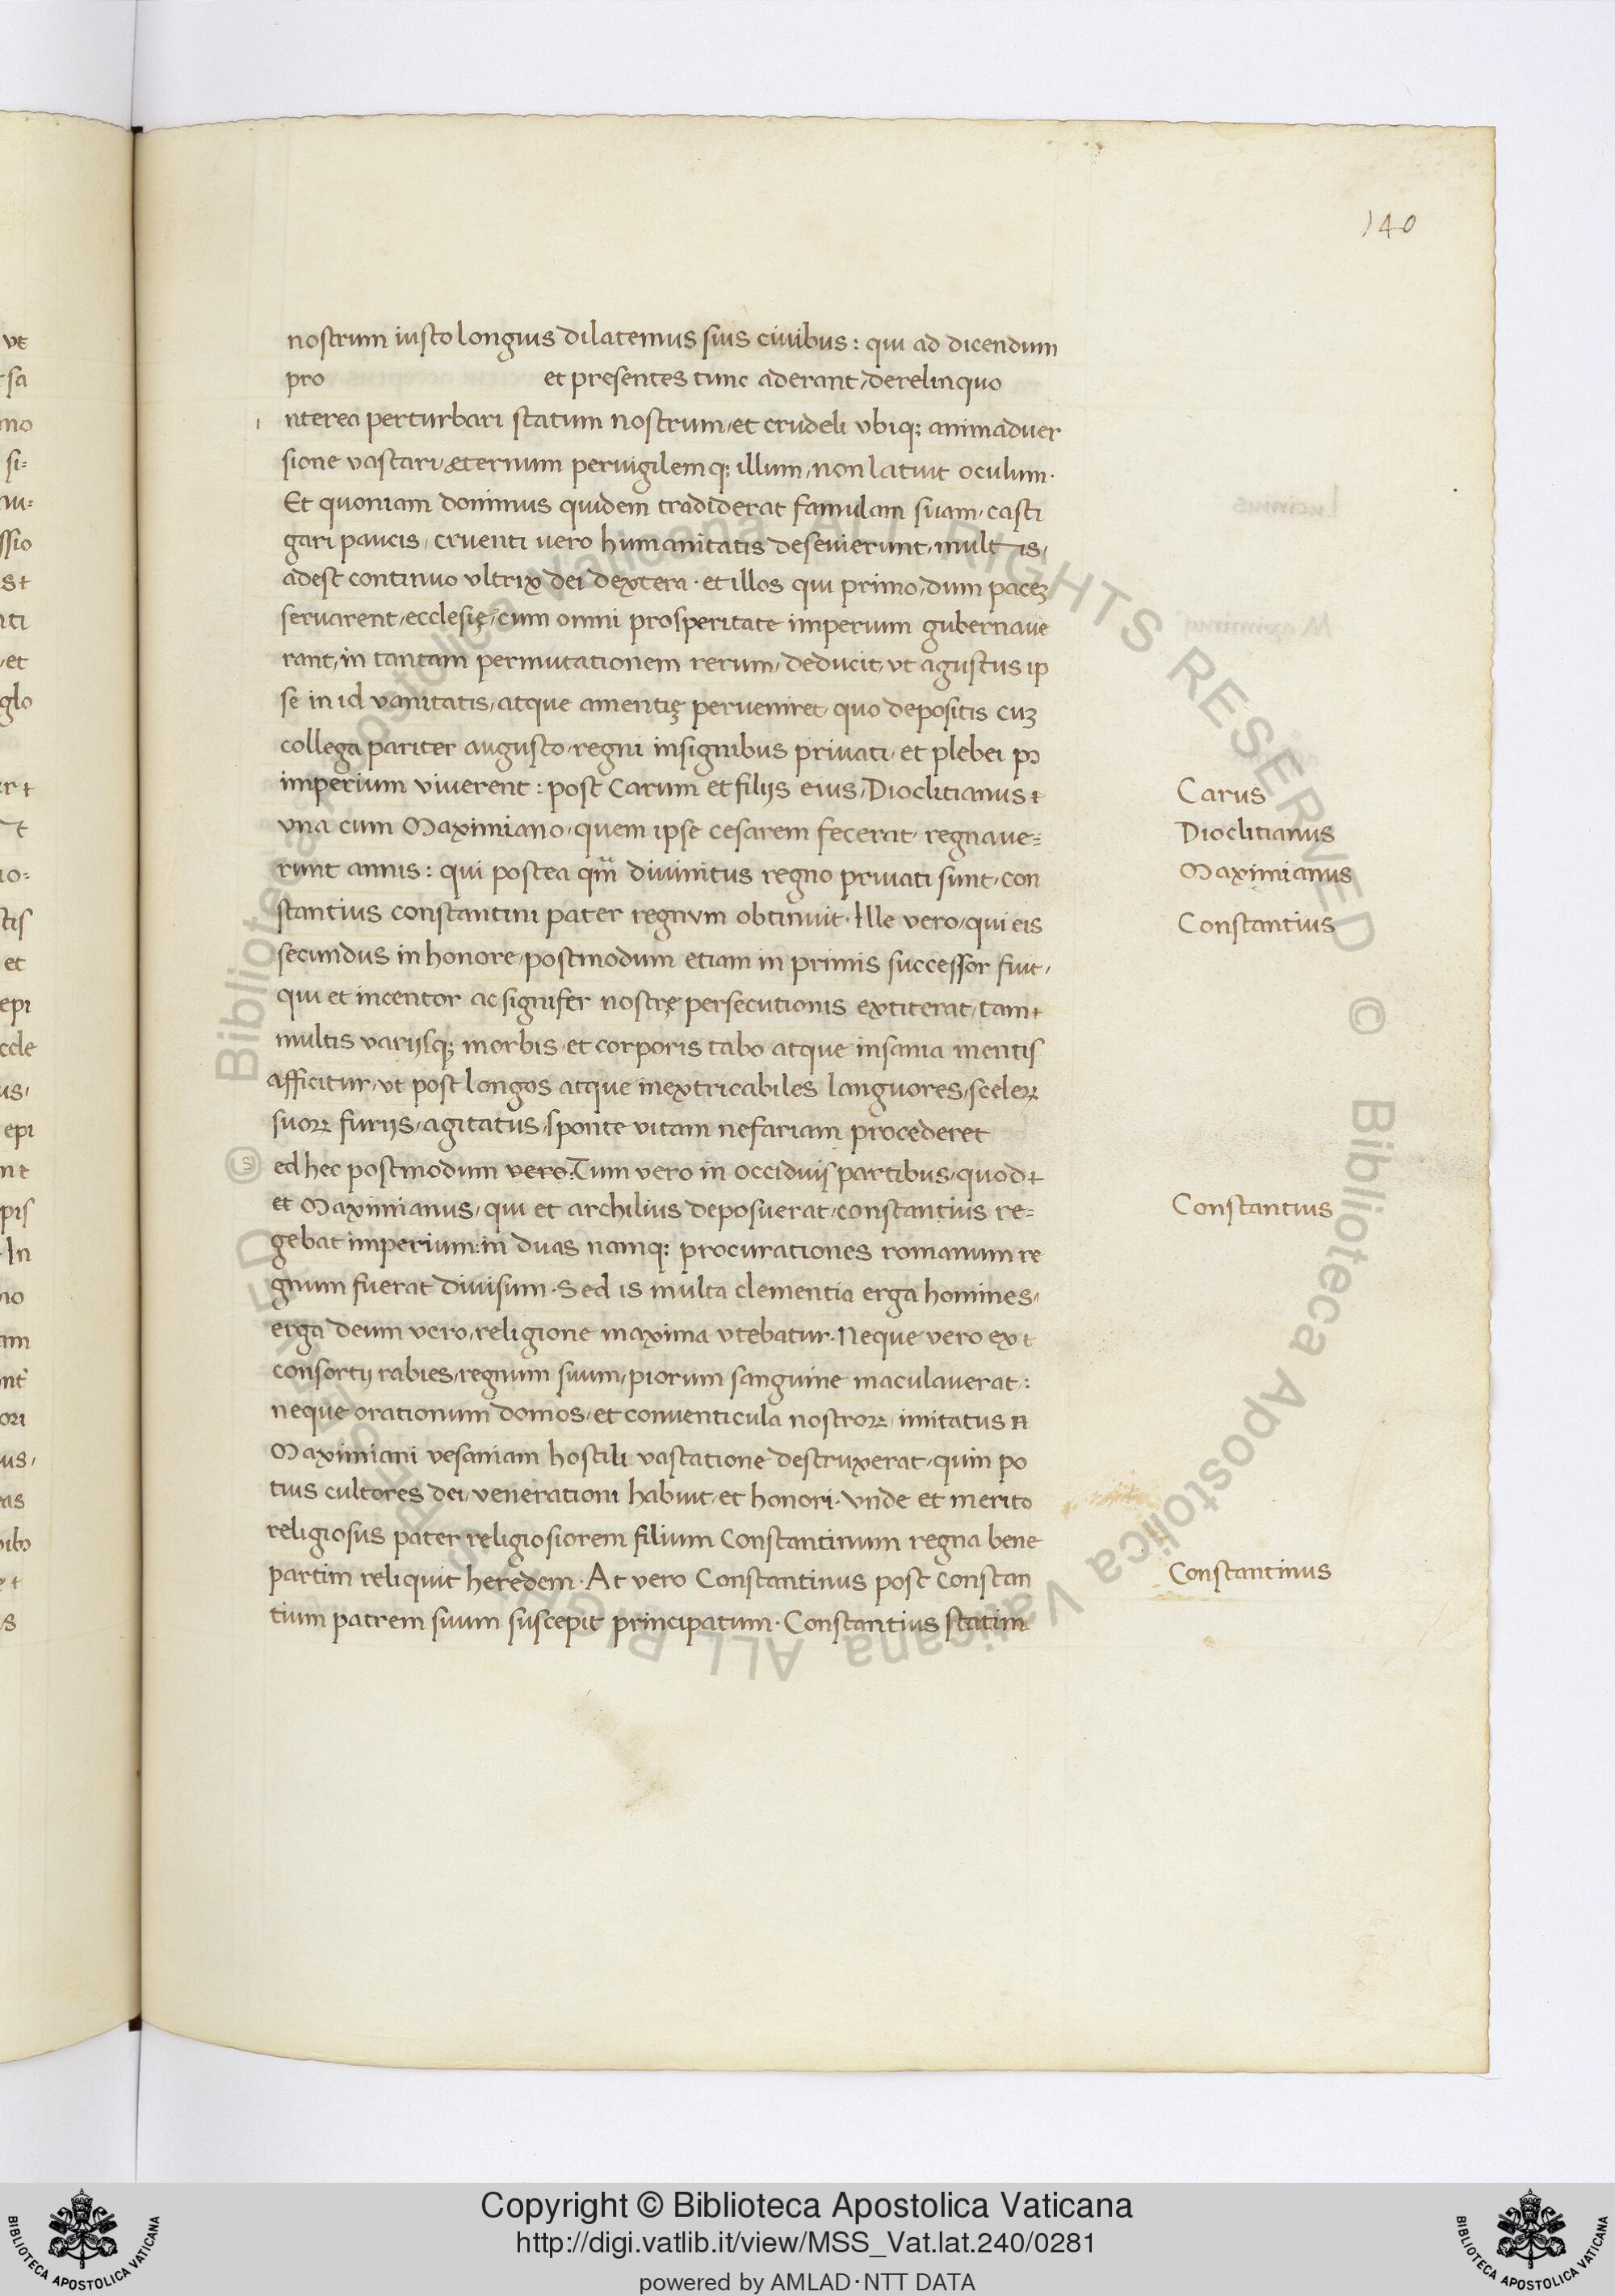 140
nostrum iusto longius dilatemus suis ciuibus: qui ad dicendum
pro et presentes tunc aderant, derelinquo
i nterea perturbari statum nostrum, et crudeli vbiq; animaduer
sione vastari, æternum peruigilemq; illum, non latuit oculum.
Et quoniam dominus quidem tradiderat famulam suam, casti
gari paucis, cruenti uero humanitatis deseuierunt, mult is,
adest continuo vltrix dei dextera. et illos qui primo, dum paceʒ
seruarent, ecclesię, cum omni prosperitate imperium gubernaue
rant, in tantam permutationem rerum, deducit, vt agustus ip
se in id vanitatis, atque amentię perueniret, quo depositis cuʒ
collega pariter augusto, regni insignibus priuati, et plebei p9
imperium viuerent: post Carum et filijs eius, Dioclitianus
vna cum Maximiano, quem ipse cesarem fecerat, regnaue=
runt annis: qui postea qm̃ diuinitus regno priuati sunt, con
stantius constantini pater regnvm obtinuit. Ille vero, qui eis
secundus in honore, postmodum etiam in primis successor fuit,
qui et incentor ac signifer nostrę persecutionis extiterat, tam
multis varijsq; morbis, et corporis tabo atque insania mentis
afficitur, vt post longos atque inextricabiles languores, sceleꝝ
suoꝝ furijs, agitatus, sponte vitam nefariam procederet
s ed hec postmodum vero: Tum vero in occiduis partibus, quod
et Maximianus, qui et archilius deposuerat, constantius re=
gebat imperium: in duas namq; procurationes romanum re
gnum fuerat diuisum. Sed is multa clementia erga homines,
erga deum vero, religione maxima vtebatur. Neque vero ex
consortij rabies, regnum suum, piorum sanguine maculauerat:
neque orationum domos, et conuenticula nostroꝝ, imitatus
Maximiani vesaniam hostili vastatione destruxerat, quin po
tius cultores dei, venerationi habuit, et honori. vnde et merito
religiosus pater religiosiorem filium Constantinum regna bene
partim reliquit heredem. At vero Constantinus post constan
tium patrem suum suscepit principatum. Constantius statim
Carus
Dioclitianus
Maximianus
Constantius
Constantius
Constantinus
Copyright © Biblioteca Apostolica Vaticana
http://digi.vatlib.it/view/MSS_Vat.lat.240/0281
powered by AMLAD·NTT DATA